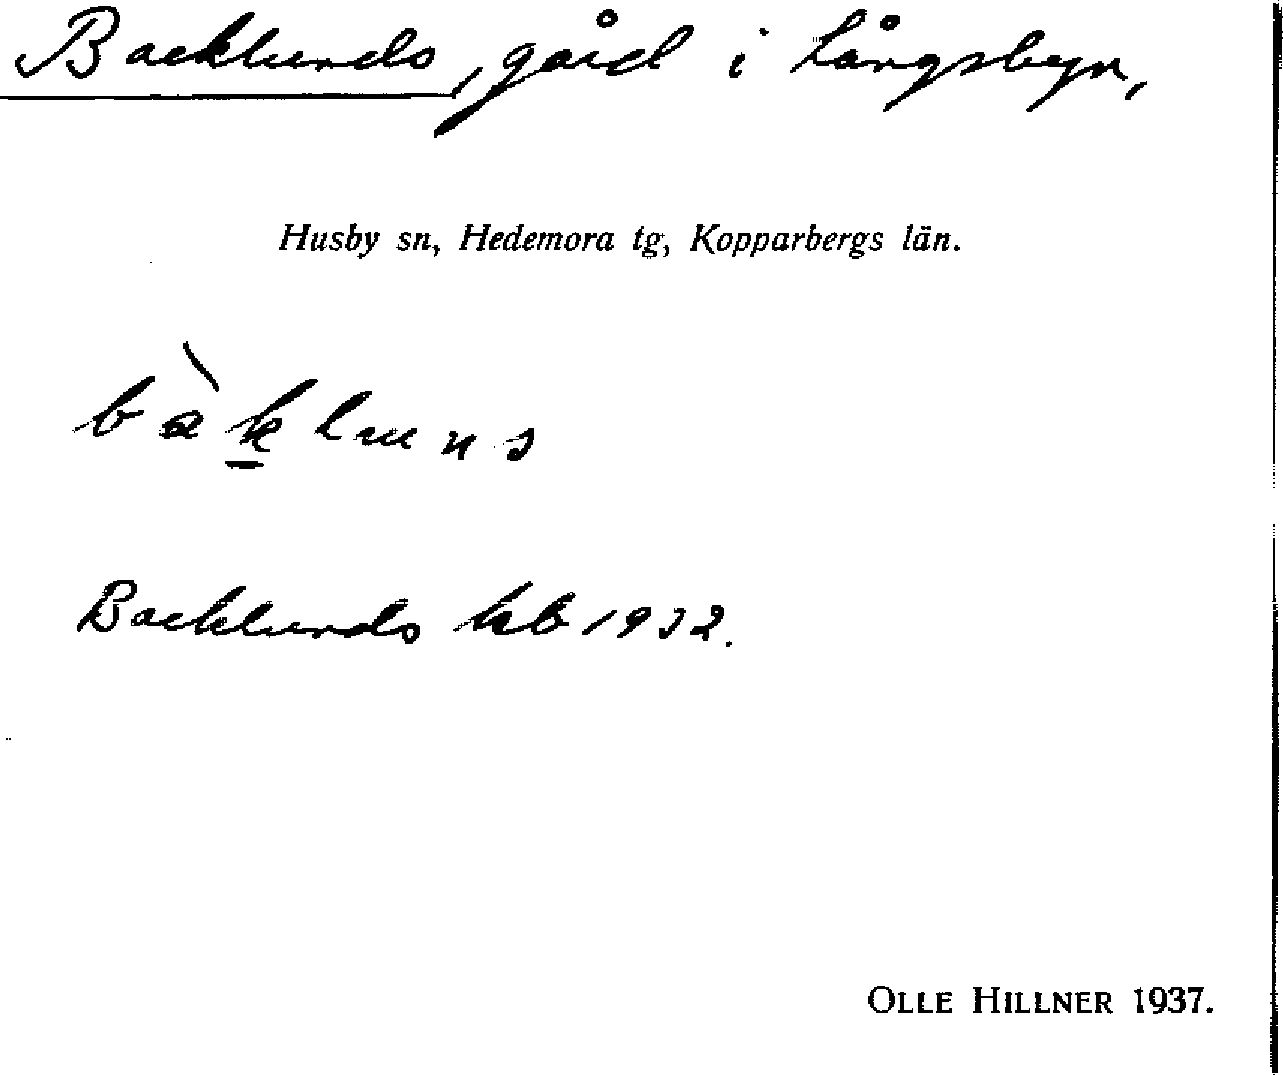 Backlunds, gård i Långsbyn,
Husby sn, Hedemora tg, Kopparbergs län.
bàk̲luns
Backlunds kb 1932.
OLLE HILLNER 1937.